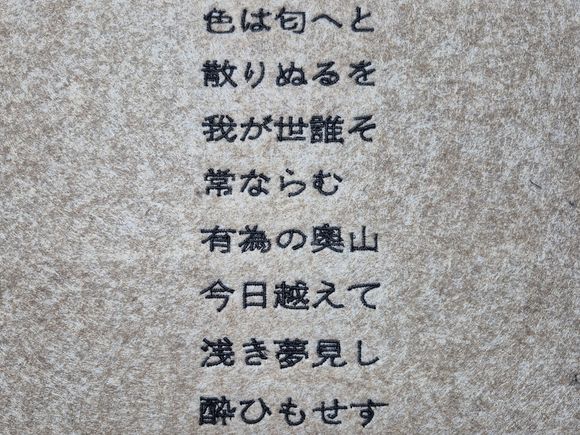 色は匂へと
散りぬるを
我が世誰そ
常ならむ
有為の奥山
今日越えて
浅き夢見し
酔ひもせす